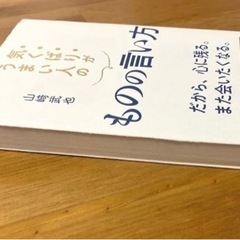 気くばりが
うまい人の
ものの言い方
山﨑武也
だから、心に残る。
また会いたくなる。